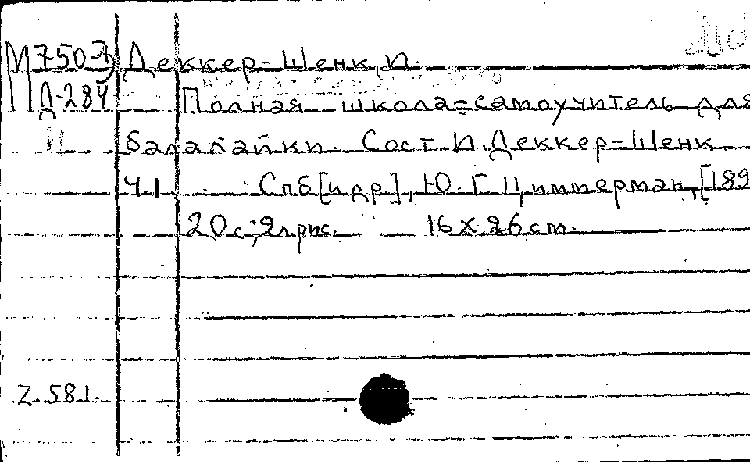 М750-3) Деккер-Шенк, И.
Д-284 Полная школа-самоучитель для
балалайки. Сост. И. Деккер-Шенк.
Ч.1 Спб [и др.], Ю. Г. Циммерман, [189
20 с.; 2 л рис. 16 х 26 cm.
Z. 581.